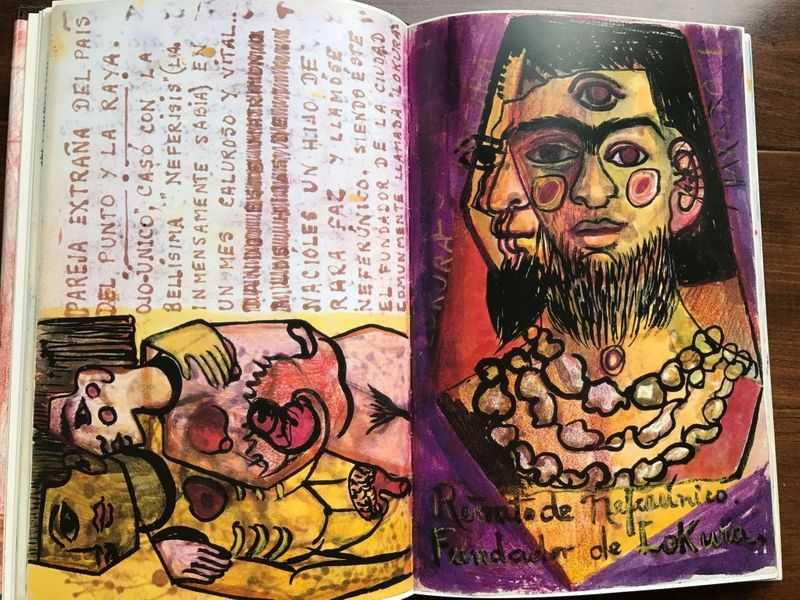 PAREJA EXTRAÑA DEL PAIS
DEL PUNTO Y LA RAYA.
OJO-UNICO", CASÓ CON LA
BELLÍSIMA "NEFERISIS" (LA
INMENSAMENTE SABIA) EN
UN MES CALUROSO Y VITAL...
NACIÓLES UN HIJO DE
RARA FAZ Y LLAMÓSE
NEFERÚNICO, SIENDO ÉSTE
EL FUNDADOR DE LA CIUDAD
COMUNMENTE LLAMADA "LOKURA"
LOKURA
Retrato de Neferúnico.
Fundador de LoKura.